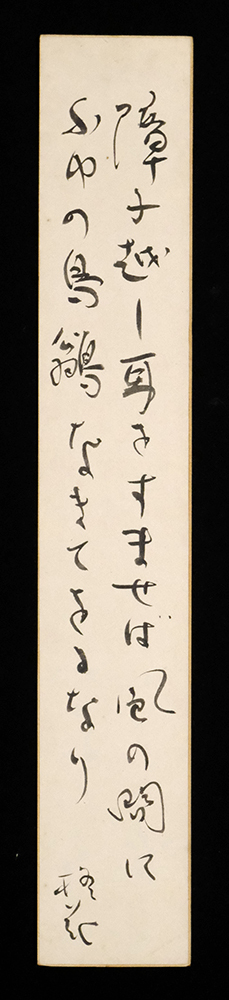 障子越し耳をすませば風の間に
冬の鳥鶲なきてをるなり